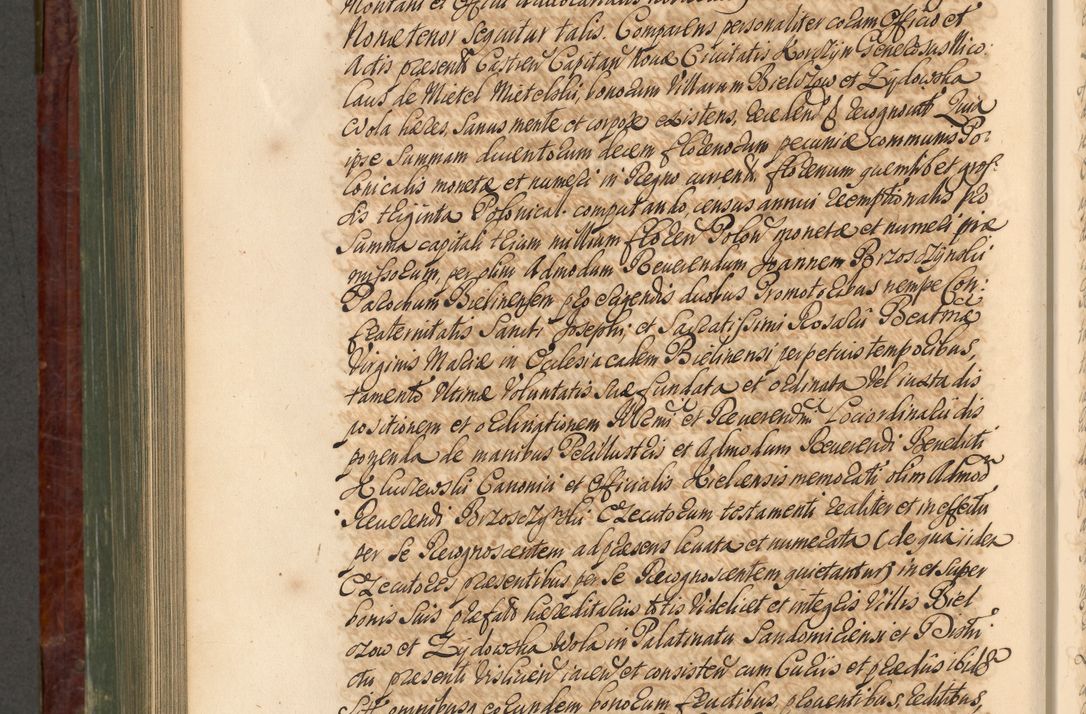 Nonæ tenor sequitur talis. Comparens personaliter coram Officio et
Actis præsentib Castren Capitan Novæ Civitatis Korczyn Generosus Nico:
laus de Mietel Mietelskii, bonorum Villarum Bielrzow et Zydowska
Wola hæres, sanus mente et corpore existens, recedend recognovit Quia
ipse Summam ducentorum decem florenorum pecuniæ communis Po:
lonicalis monetæ et numeri in Regno currend, florenum quemlibet gros:
sis triginta Polonical. computando, census annui reemptionalis pro
Summa capitali trium millium floren Polon monetæ et numeri præ
missorum, per olim Admodum Reverendum Joannem Brzosczynskii
Parochum Bielinensem pro erigendis duobus Promotoribus nempe Con:
fraternitatis Sancti Josephi, et Sacratissimi Rosarii Beatmæ
Virginis Mariæ in Ecclesia eadem Bielinensi perpetuis temporibus,
tamento Ultimæ Voluntatis suæ fundata et ordinata Vel iuxta dis
positionem et ordinationem Illmi et Reverendmi Loci ordinarii dis
ponenda de manibus Perillustris et Admodum Reverendi Benedicti
Canonici et Officialis Kielcensis memorati olim Admod
Reverendi Executorum testamenti realiter et in effectu
per se Recognoscentem ad præsens levata et numerata (de qua iidem
Executores præsentibus per se Recognoscentem quietantur) in et super
bonis suis præfatis hæreditariis totis Videlicet et integris Villis Biel
rzow et Zydowska Wola in Palatinatu Sandomiriensi et Distri
ctu præsenti Vislicien iacen et consisten cum Curiis et prædiis ibid
omnibusq eorundem bonorum fructibus proventibus, redditibus,